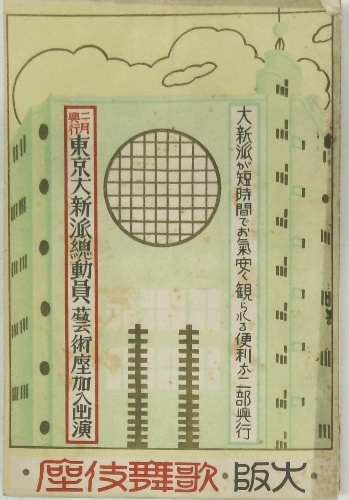 大新派が短時間でお氣安く観られる便利な二部興行
二月興行
東京大新派總動員、藝術座加入出演
大阪・歌舞伎座